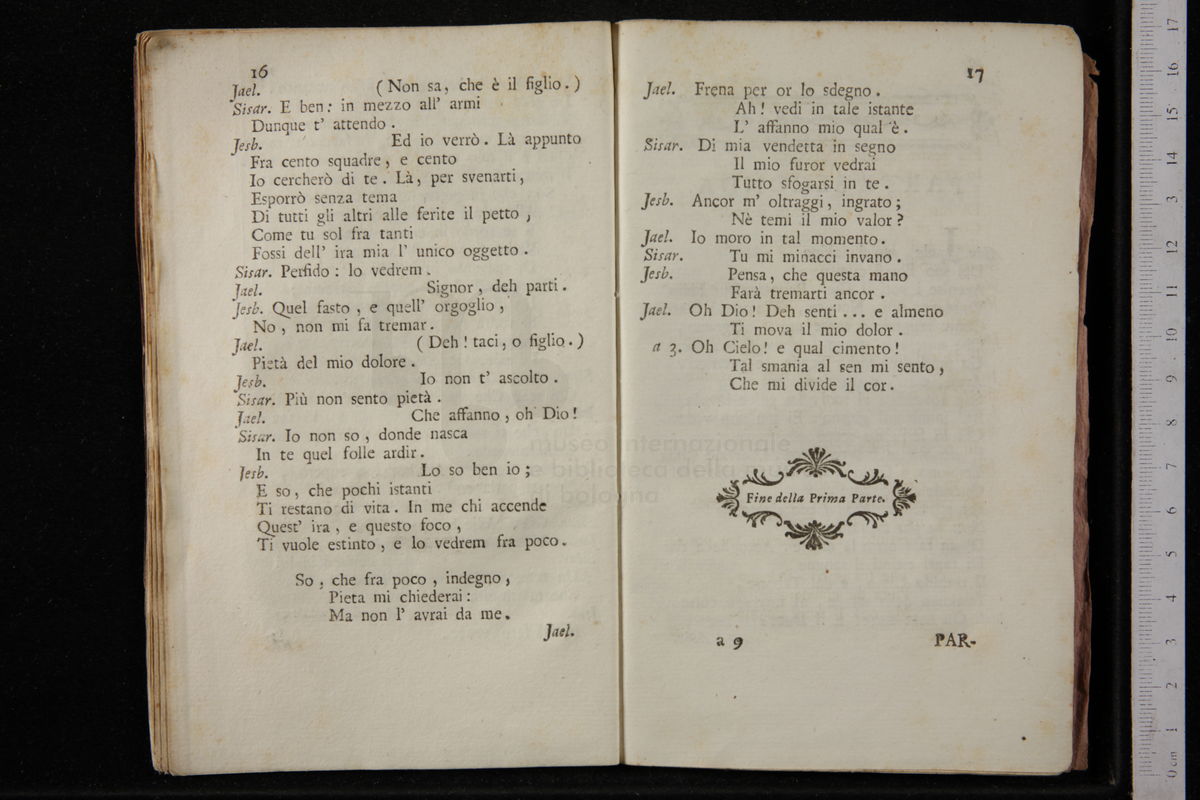 16
Jael. (Non sa, che è il figlio.)
Sisar. E ben: in mezzo all' armi
Dunque t' attendo.
Jesb. Ed io verrò. Là appunto
Fra cento squadre, e cento
Io cercherò di te. Là, per svenarti,
Esporrò senza tema
Di tutti gli altri alle ferite il petto,
Come tu sol fra tanti
Fossi dell' ira mia l' unico oggetto.
Sisar. Perfido: lo vedrem.
Jael. Signor, deh parti.
Jesb. Quel fasto, e quell' orgoglio,
No, non mi fa tremar.
Jael. (Deh! taci, o figlio.)
Pietà del mio dolore.
Jesb. Io non t' ascolto.
Sisar. Più non sento pietà.
Jael. Che affanno, oh Dio!
Sisar. Io non so, donde nasca
In te quel folle ardir.
Jesb. Lo so ben io;
E so, che pochi istanti
Ti restano di vita. In me chi accende
Quest' ira, e questo foco,
Ti vuole estinto, e lo vedrem fra poco.
So, che fra poco, indegno,
Pieta mi chiederai:
Ma non l' avrai da me.
Jael.
17
Jael. Frena per or lo sdegno.
Ah! vedi in tale istante
L' affanno mio qual è.
Sisar. Di mia vendetta in segno
Il mio furor vedrai
Tutto sfogarsi in te.
Jesb. Ancor m' oltraggi, ingrato;
Nè temi il mio valor?
Jael. Io moro in tal momento.
Sisar. Tu mi minacci invano.
Jesb. Pensa, che questa mano
Farà tremarti ancor.
Jael. Oh Dio! Deh senti... e almeno
Ti mova il mio dolor.
a 3. Oh Cielo! e qual cimento!
Tal smania al sen mi sento,
Che mi divide il cor.
museo internazionale
e biblioteca della mu
di bologna
Fine della Prima Parte.
a 9 PAR-
0 cm 1 2 3 4 5 6 7 8 9 10 11 12 13 14 15 16 17